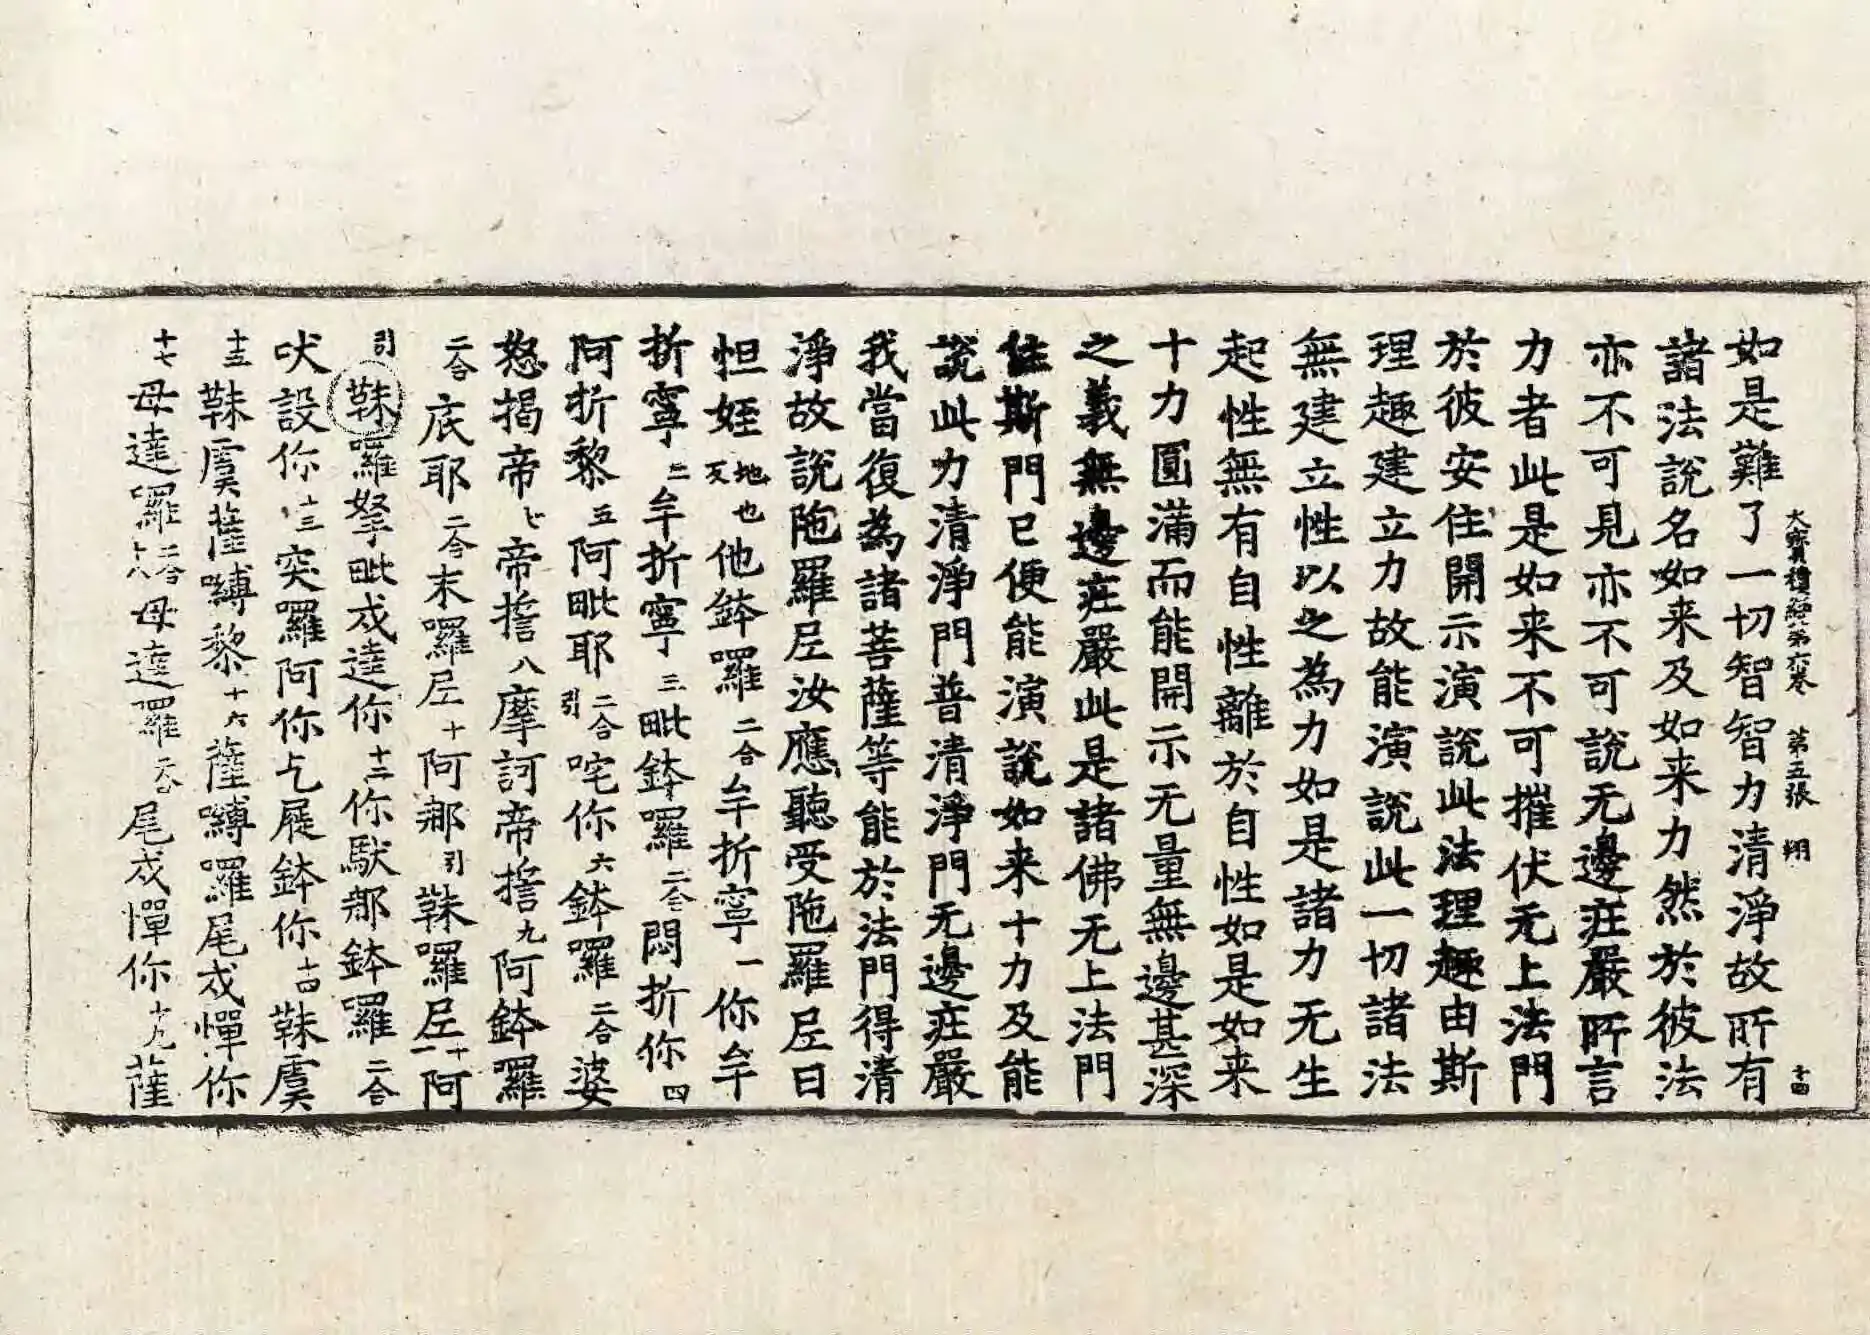 如是難了一切智智力清淨故所有
大寳積經第六卷 第五張 翔 十四
諸法說名如来及如来力然於彼法
亦不可見亦不可說无邊莊嚴所言
力者此是如来不可摧伏无上法門
於彼安住開示演說此法理趣由斯
理趣建立力故能演說此一切諸法
無建立性以之為力如是諸力无生
起性無有自性離於自性如是如来
十力圓滿而能開示无量無邊甚深
之義無邊莊嚴此是諸佛无上法門
住斯門已便能演說如来十力及能
說此力清淨門普清淨門无邊莊嚴
我當復為諸菩薩等能於法門得清
淨故說陁羅尼汝應聽受陁羅尼曰
怛姪地也反他鉢囉二合牟折寧一你牟
折寧二牟折寧三毗鉢囉二合悶折你四
阿折黎五阿毗耶二合引咤你六鉢囉二合婆
怒揭帝七帝揸八摩訶帝揸九阿鉢囉
二合底耶二合末囉尼十阿那引靺囉尼十一阿
引靺囉拏毗戍達你十二你馱那鉢囉二合
吠設你十三突囉阿你乞屣鉢你十四靺虞
十五靺虞薩嚩黎十六薩嚩囉尾戍憚你
十七母達囉二合十八母達囉二合尾戍憚你十九薩